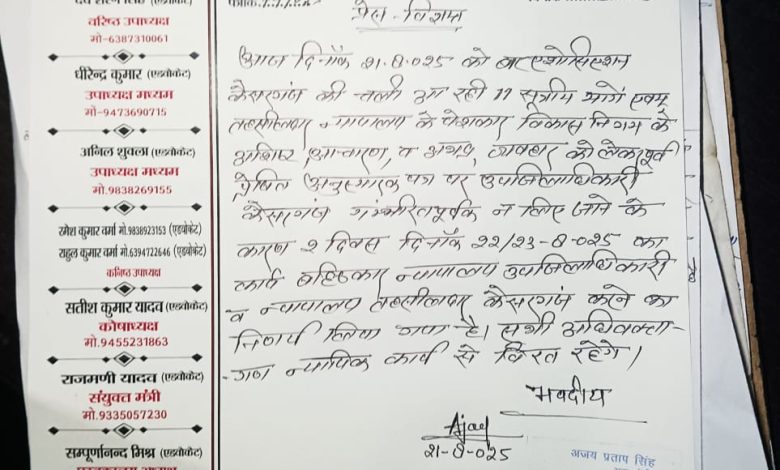 वरिष्ठ उपाध्यक्ष
मो-6387310061
धीरेन्द्र कुमार (एडवोकेट)
उपाध्यक्ष मध्यम
मो-9473690715
अनिल शुक्ला (एडवोकेट)
उपाध्यक्ष मध्यम
मो.9838269155
रमेश कुमार वर्मा मो.9838923153 (एडवोकेट)
राहुल कुमार वर्मा मो.6394722646 (एडवोकेट)
कनिष्ठ उपाध्यक्ष
सतीश कुमार यादव (एडवोकेट)
कोषाध्यक्ष
मो.9455231863
राजमणी यादव (एडवोकेट)
संयुक्त मंत्री
मो.9335057230
सम्पूर्णानन्द मिश्र (एडवोकेट)
प्रेस-विज्ञप्ति
आज दिनाँक 21-8-025 को बार एशोसिएशन
कैसरगंज की चली आ रही 11 सूत्रीय मांगें एवम्
तहसीलदार न्यायालय के पेशकार विकास निगम के
अशिष्ट आचारण, व अभद्र व्यवहार को लेकर पूर्व
प्रेषित अनुस्मारक पत्र पर उपजिलाधिकारी
कैसरगंज गम्भीरतापूर्वक न लिए जाने के
कारण 2 दिवस दिनाँक 22/23-8-025 का
कार्य बहिष्कार न्यायालय उपजिलाधिकारी
व न्यायालय तहसीलदार कैसरगंज करने का
निर्णय लिया गया है। सभी अधिवक्ता-
गण न्यायिक कार्य से विरत रहेंगे।
भवदीय
Ajay
21-8-025
अजय प्रताप सिंह